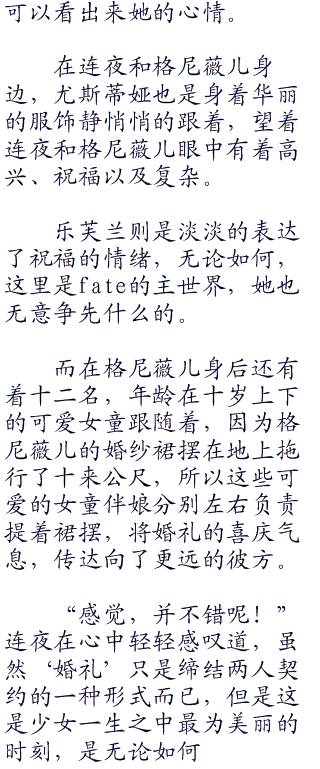 可以看出来她的心情。
在连夜和格尼薇儿身
边，尤斯蒂娅也是身着华丽
的服饰静悄悄的跟着，望着
连夜和格尼薇儿眼中有着高
兴、祝福以及复杂。
乐芙兰则是淡淡的表达
了祝福的情绪，无论如何，
这里是fate的主世界，她也
无意争先什么的。
而在格尼薇儿身后还有
着十二名，年龄在十岁上下
的可爱女童跟随着，因为格
尼薇儿的婚纱裙摆在地上拖
行了十来公尺，所以这些可
爱的女童伴娘分别左右负责
提着裙摆，将婚礼的喜庆气
息，传达向了更远的彼方。
“感觉，并不错呢！”
连夜在心中轻轻感叹道，虽
然‘婚礼’只是缔结两人契
约的一种形式而已，但是这
是少女一生之中最为美丽的
时刻，是无论如何